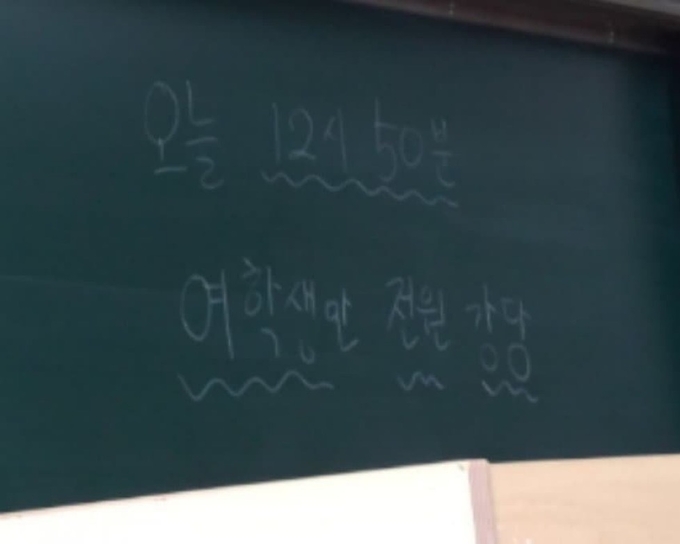 오늘 12시 50분
여학생만 전원 강당